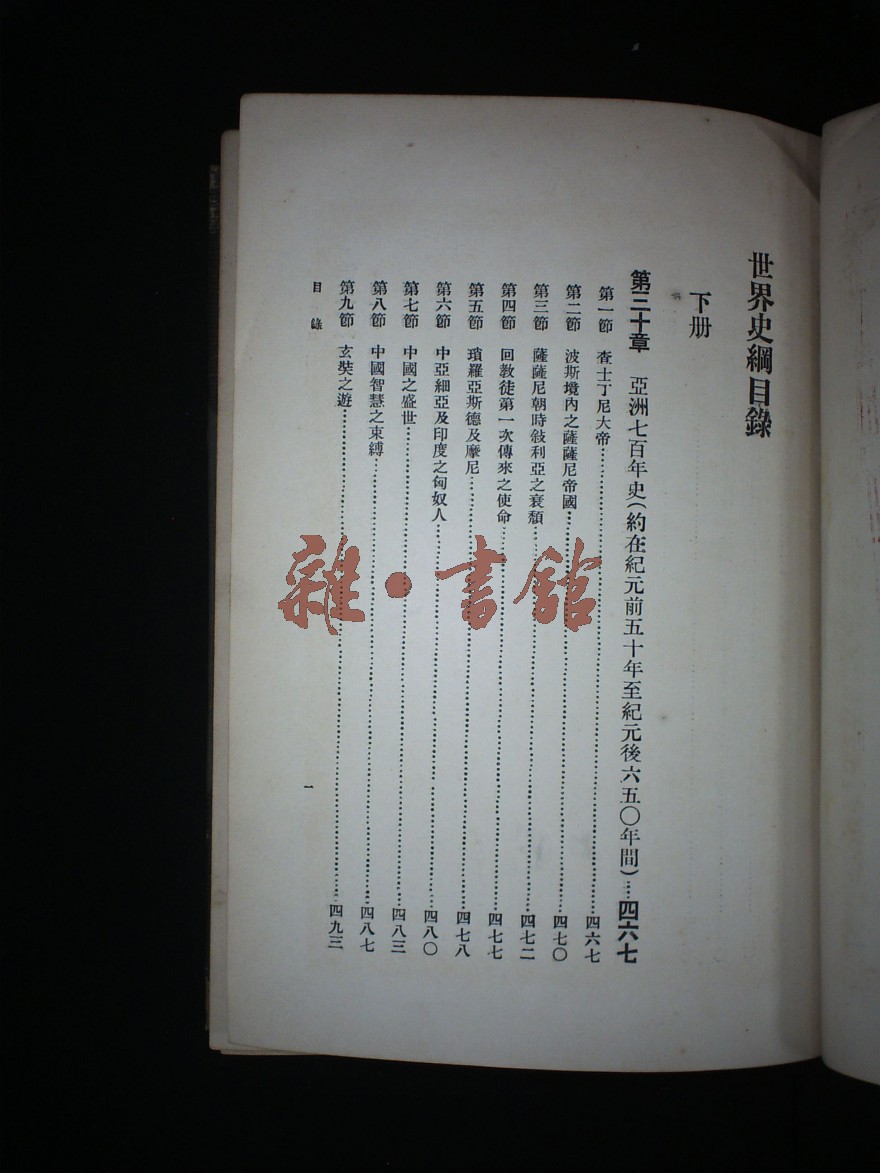 世界史綱目錄
下册
第三十章 亞洲七百年史(約在紀元前五十年至紀元後六五〇年間)……四六七
第一節 查士丁尼大帝……四六七
第二節 波斯境內之薩薩尼帝國……四七〇
第三節 薩薩尼朝時敍利亞之衰頽……四七二
第四節 回教徒第一次傳來之使命……四七七
第五節 瑣羅亞斯德及摩尼……四七八
第六節 中亞細亞及印度之匈奴人……四八〇
第七節 中國之盛世……四八三
第八節 中國智慧之束縛……四八七
第九節 玄奘之遊……四九三
目錄
一
雜·書館